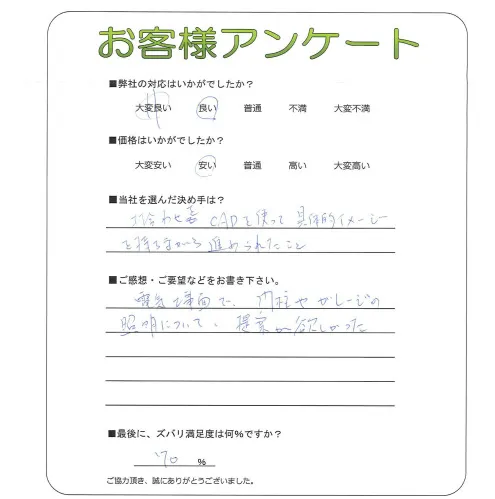 お客様アンケート
■弊社の対応はいかがでしたか？
大変良い 良い 普通 不満 大変不満
■価格はいかがでしたか？
大変安い 安い 普通 高い 大変高い
■当社を選んだ決め手は？
打合わせ CADを使って 具体的イメージ
を持ちながら 進められたこと
■ご感想・ご要望などをお書き下さい。
電気工事面で、門柱やガレージの
照明について、提案が欲しかった
■最後に、ズバリ満足度は何％ですか？
70 ％
ご協力頂き、誠にありがとうございました。